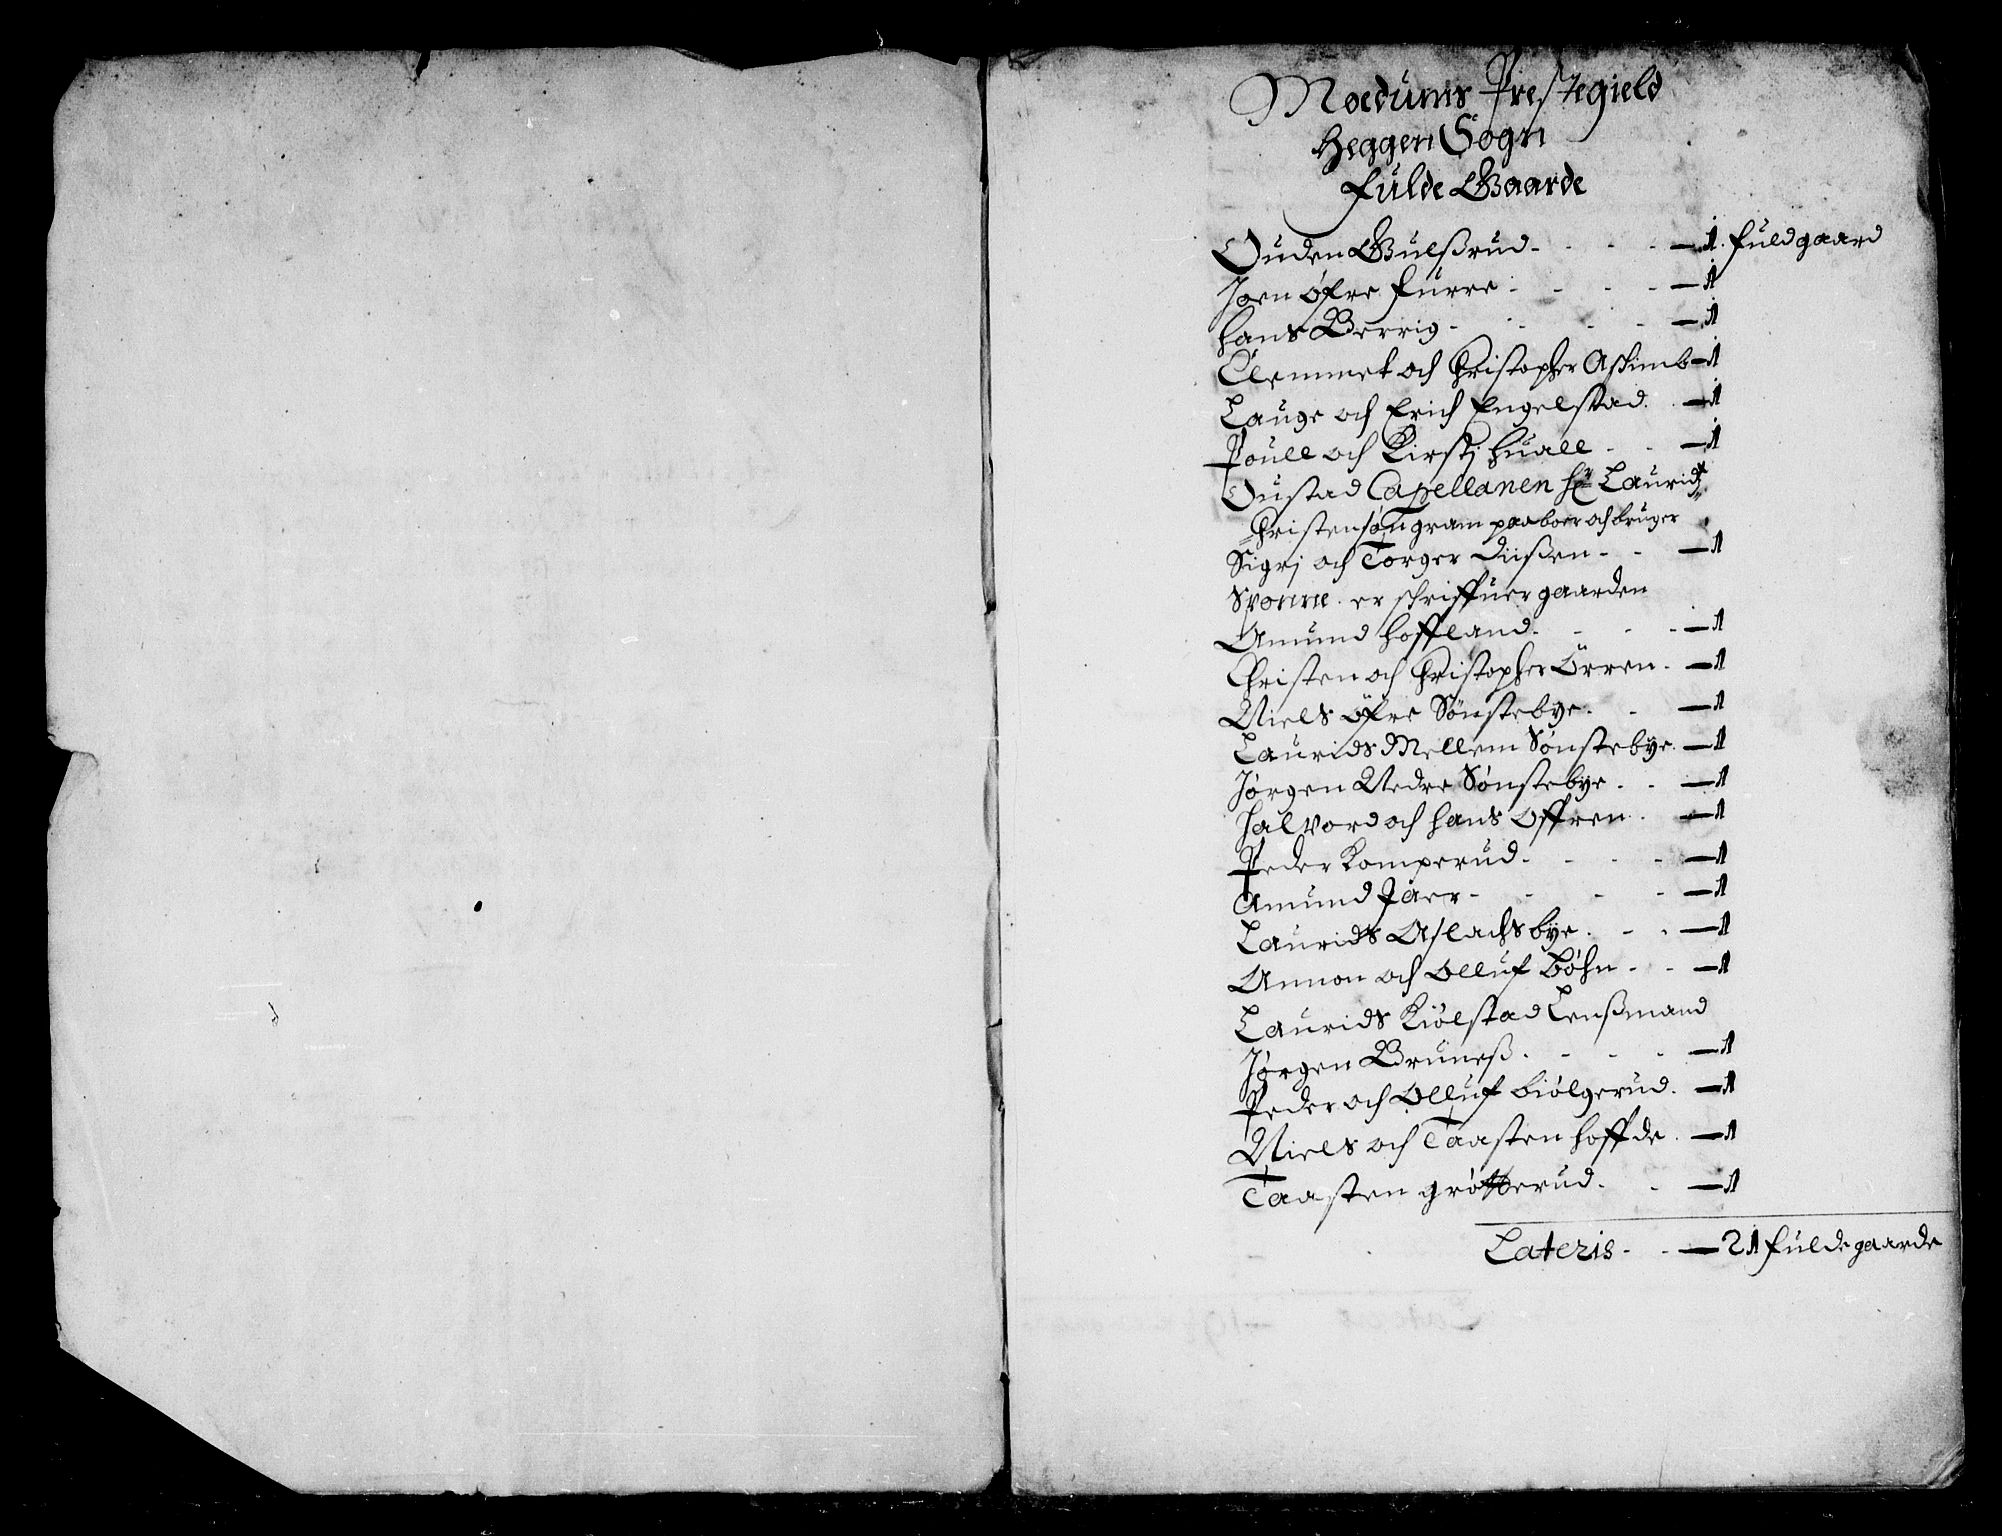 Moedums Prestegield
Heggen Sogn
Fulde Gaarde
Ouden Gulßrud - - - - 1 fuldgaard
Joen øfre Furre - - - - 1
Hans Berrig - - - - 1
Clemmet och Christopher Aschimb - 1
Lauge och Erich Engelstad - 1
Poull och Kirstj Huall - - 1
Oustad Capellanen Hr Laurids
Christensøn gram paaboer och bruger
Sigrj och Torger Diißen - - 1
Svonne er schriffuer gaarden
Amund Hoffland - - - 1
Christen och Christopher Örren - 1
Niels öfre Sönstebye - - 1
Laurids Mellem Sønstebye - 1
Jørgen Nedre Sönstebye - - 1
Halvord och Hans Offren - 1
Peder Komperud - - - 1
Amund Jaer - - - 1
Laurids Aslachsbye - - 1
Annon och Olluf Böhn - - 1
Laurids Kiölstad Lenßmand
Jørgen Bruneß - - - 1
Peder och Olluf Biølgerud - 1
Niels och Taasten Hoffde - 1
Taasten grøtterud - - 1
Lateris - - 21 fulde gaarde